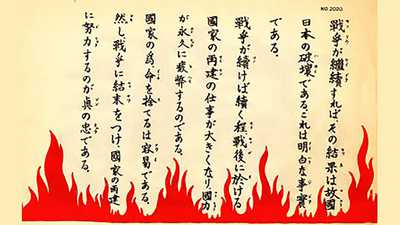 NO 2020
戰爭が繼續すれば、その結果は故國
日本の破壞である。これは明白な事實
である。
戰爭が續けば續く程戰後に於ける
國家の再建の仕事が大きくなり國力
が永久に疲弊するのである。
國家の爲、命を捨てるは容易である。
然し戰爭に結末をつけ國家の再建
に努力するのが眞の忠である。